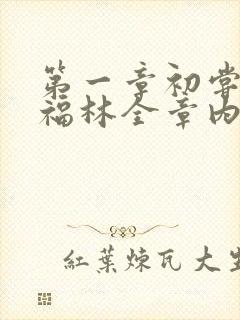 第一章初嘗
福林全章内
紅葉煉瓦大生